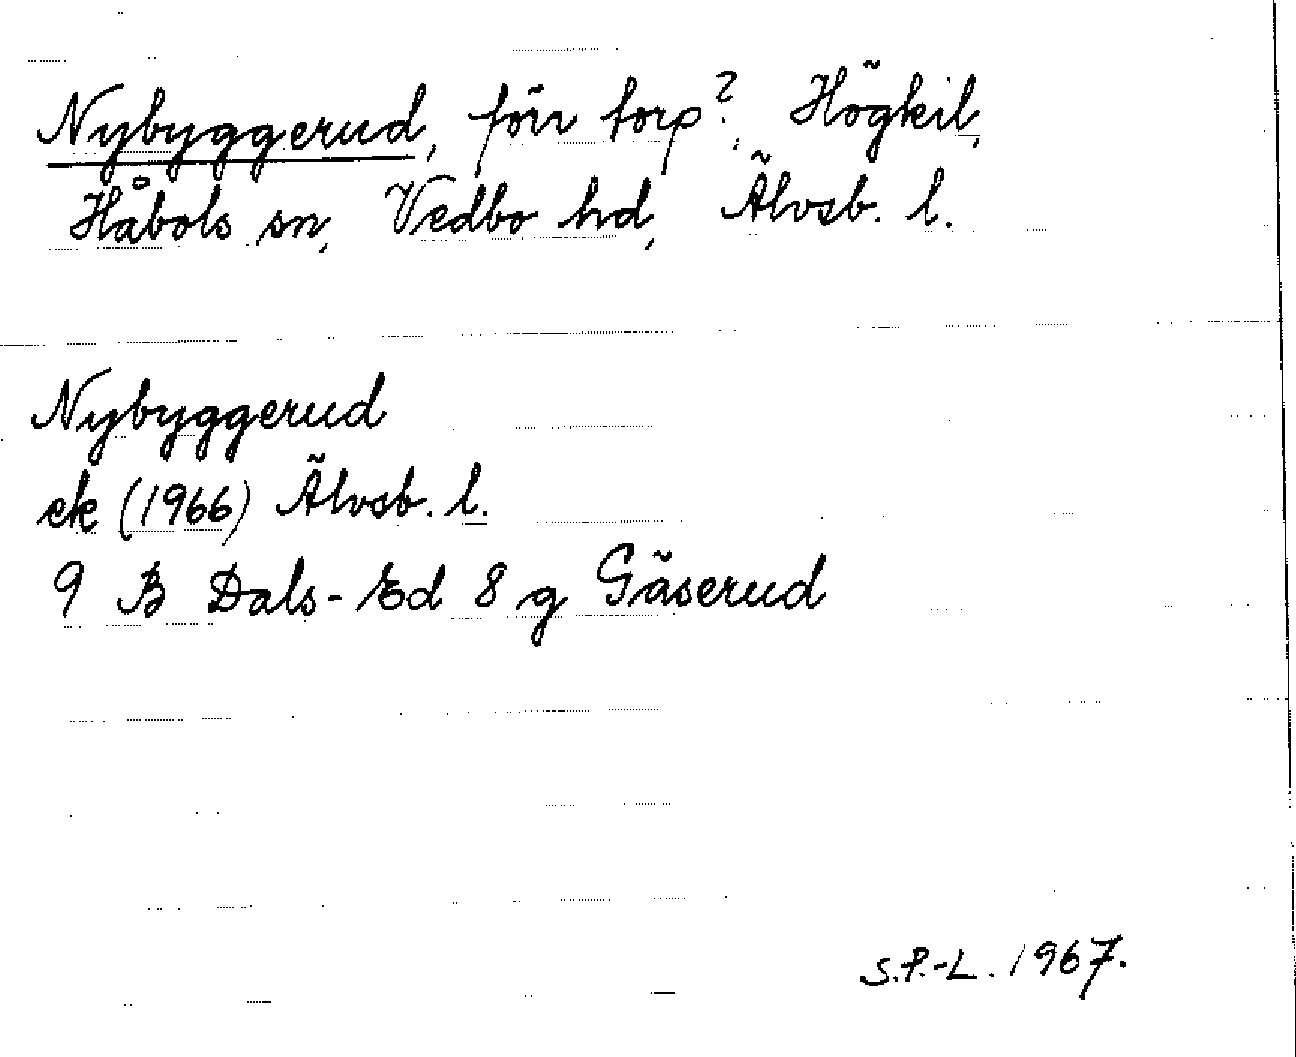 Nybyggerud, förr torp?, Högkil,
Håbols sn, Vedbo hd, Älvsb. l.
Nybyggerud
ek (1966) Älvsb. l.
9 B Dals-Ed 8 g Gäserud
S.P.-L. 1967.